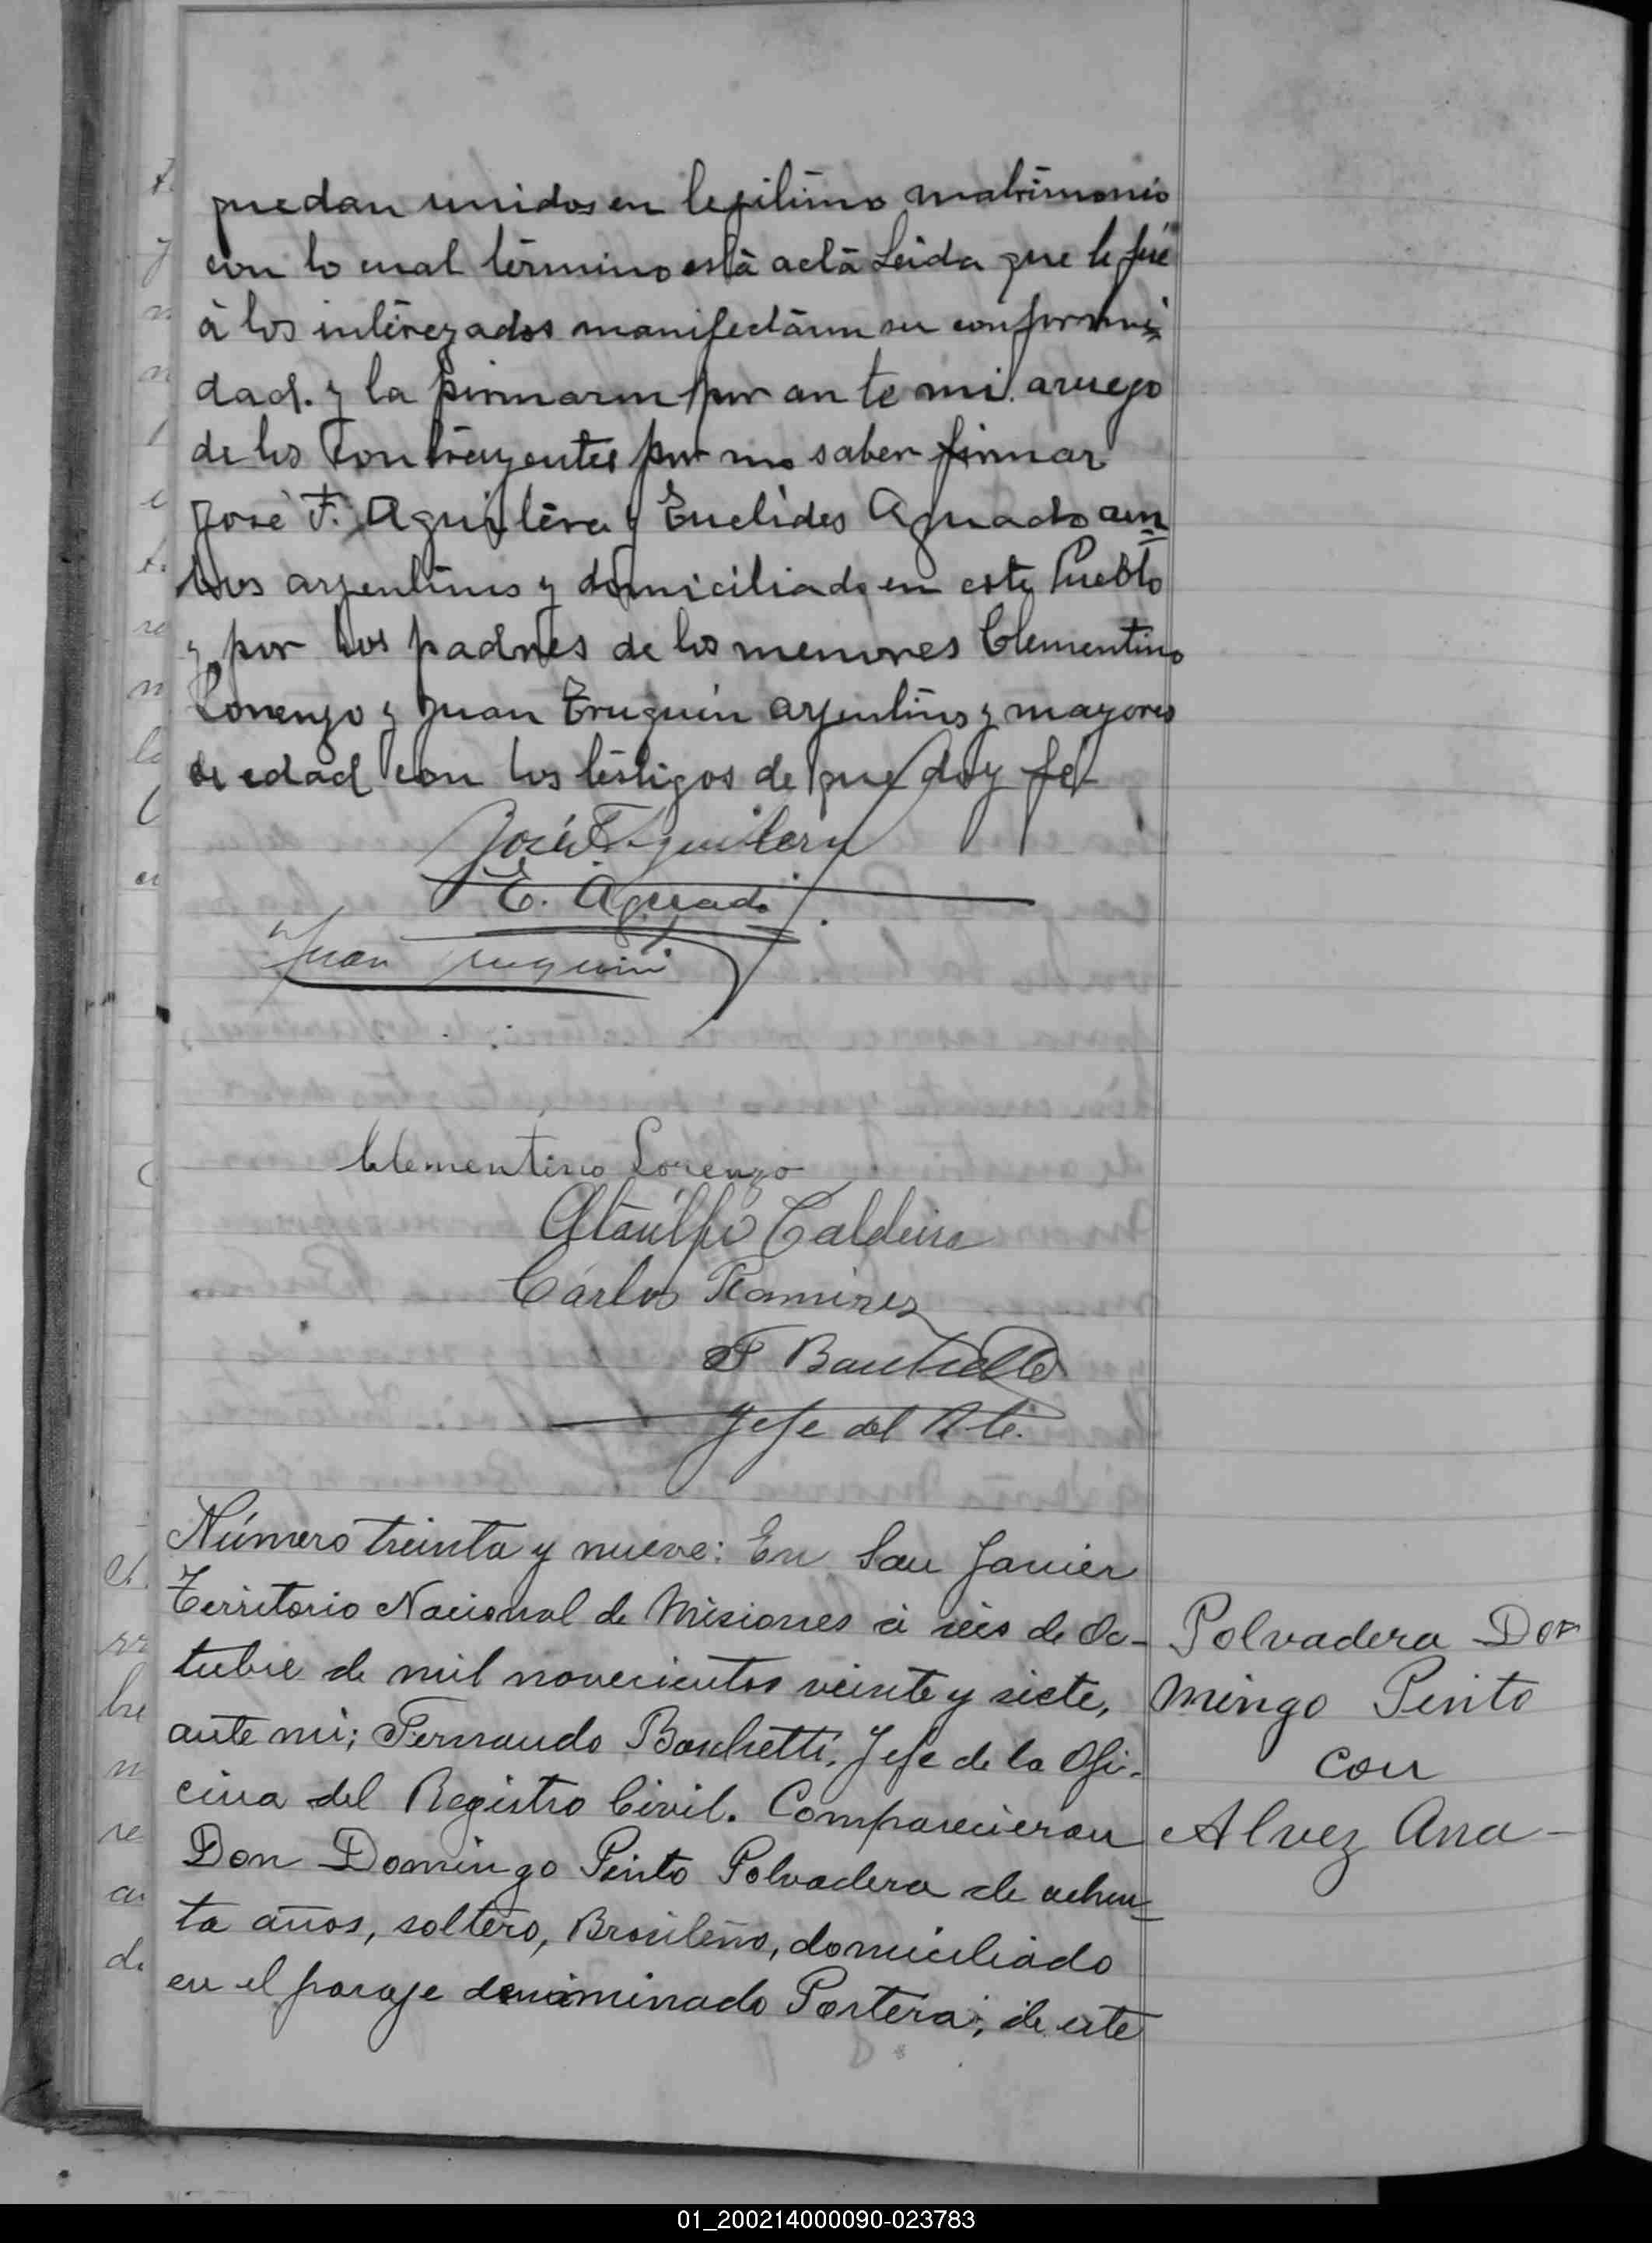 quedan unidos en lejitimo matrimonio
con lo cual término está acta Leida que le fué
à los interezados manifestaron su conformi
dad. y la firmaron por ante mi. aruego
de los Contrayentes por no saber firmar
José F. Aguilera y Euclides Aguado am
bos arjentinos y domiciliado en este Pueblo
y por los padres de los menores Clementino
Lorenzo y Juan Truguin arjentinos y mayores
de edad con los testigos de que doy fe-
José F. Aguilera
E. Aguado
Juan Truguin
Clementino Lorenzo
Ataulfo Caldeira
Carlos Ramirez
F Baschetti
Jefe del R. C.
Número treinta y nueve: En San Javier
Territorio Nacional de Misiones à seis de Oc-
tubre de mil novecientos veinte y siete,
ante mi; Fernando Baschetti, Jefe de la Ofi-
cina del Registro Civil. Comparecieron
Don Domingo Pinto Polvadera de ochen
ta años, soltero, Brasileño, domiciliado
en el paraje denominado Portera; de este
Polvadera Do
mingo Pinto
con
Alvez Ana-
01_200214000090-023783